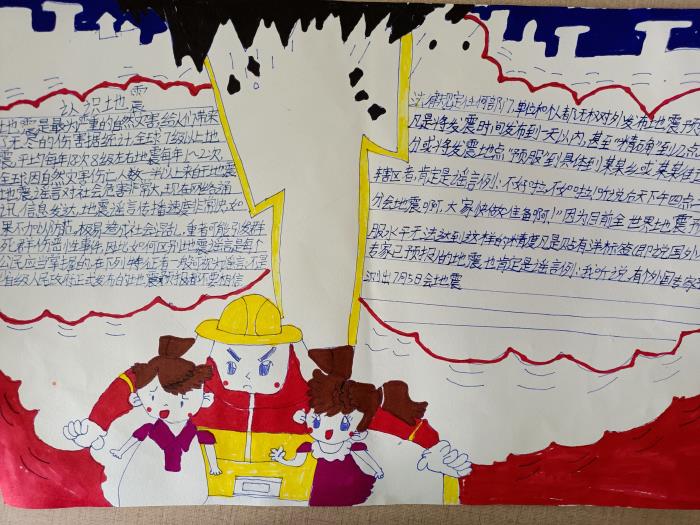 认识地震
地震是最为严重的自然灾害给人们带来
了无尽的伤害据统计,全球7级以上地
震,平均每年18次8级左右地震每年1~2次,
全球因自然灾害伤亡人数一半以上来于地震
地震谣言对社会危害非常大,现在网络通
讯,信息发达,地震谣言传播速度非常快如
果不加以防范,极易造成社会混乱,重者可能引发群
死群伤恶性事件,因此如何区别地震谣言是每个
公民应当掌握的,有下列特征有一般别就是谣言,不是
省级人民政府正式发布的地震都不要相信
法律规定任何部门、单位和个人都无权对外发布地震预
凡是将发震时间发布到一天以内,甚至"精确"到几点
分或将发震地点"预报"到具体到某某乡或某某街道
辖区者,肯定是谣言例:不好啦不好啦!听说后天下午四点
分会地震啊,大家快做准备啊!因为目前全世界地震预
报水平无法达到这样的精度凡是贴有洋标签(即说国外
专家已预报)的地震,也肯定是谣言例:我听说,有个外国专家
测出7月5日会地震